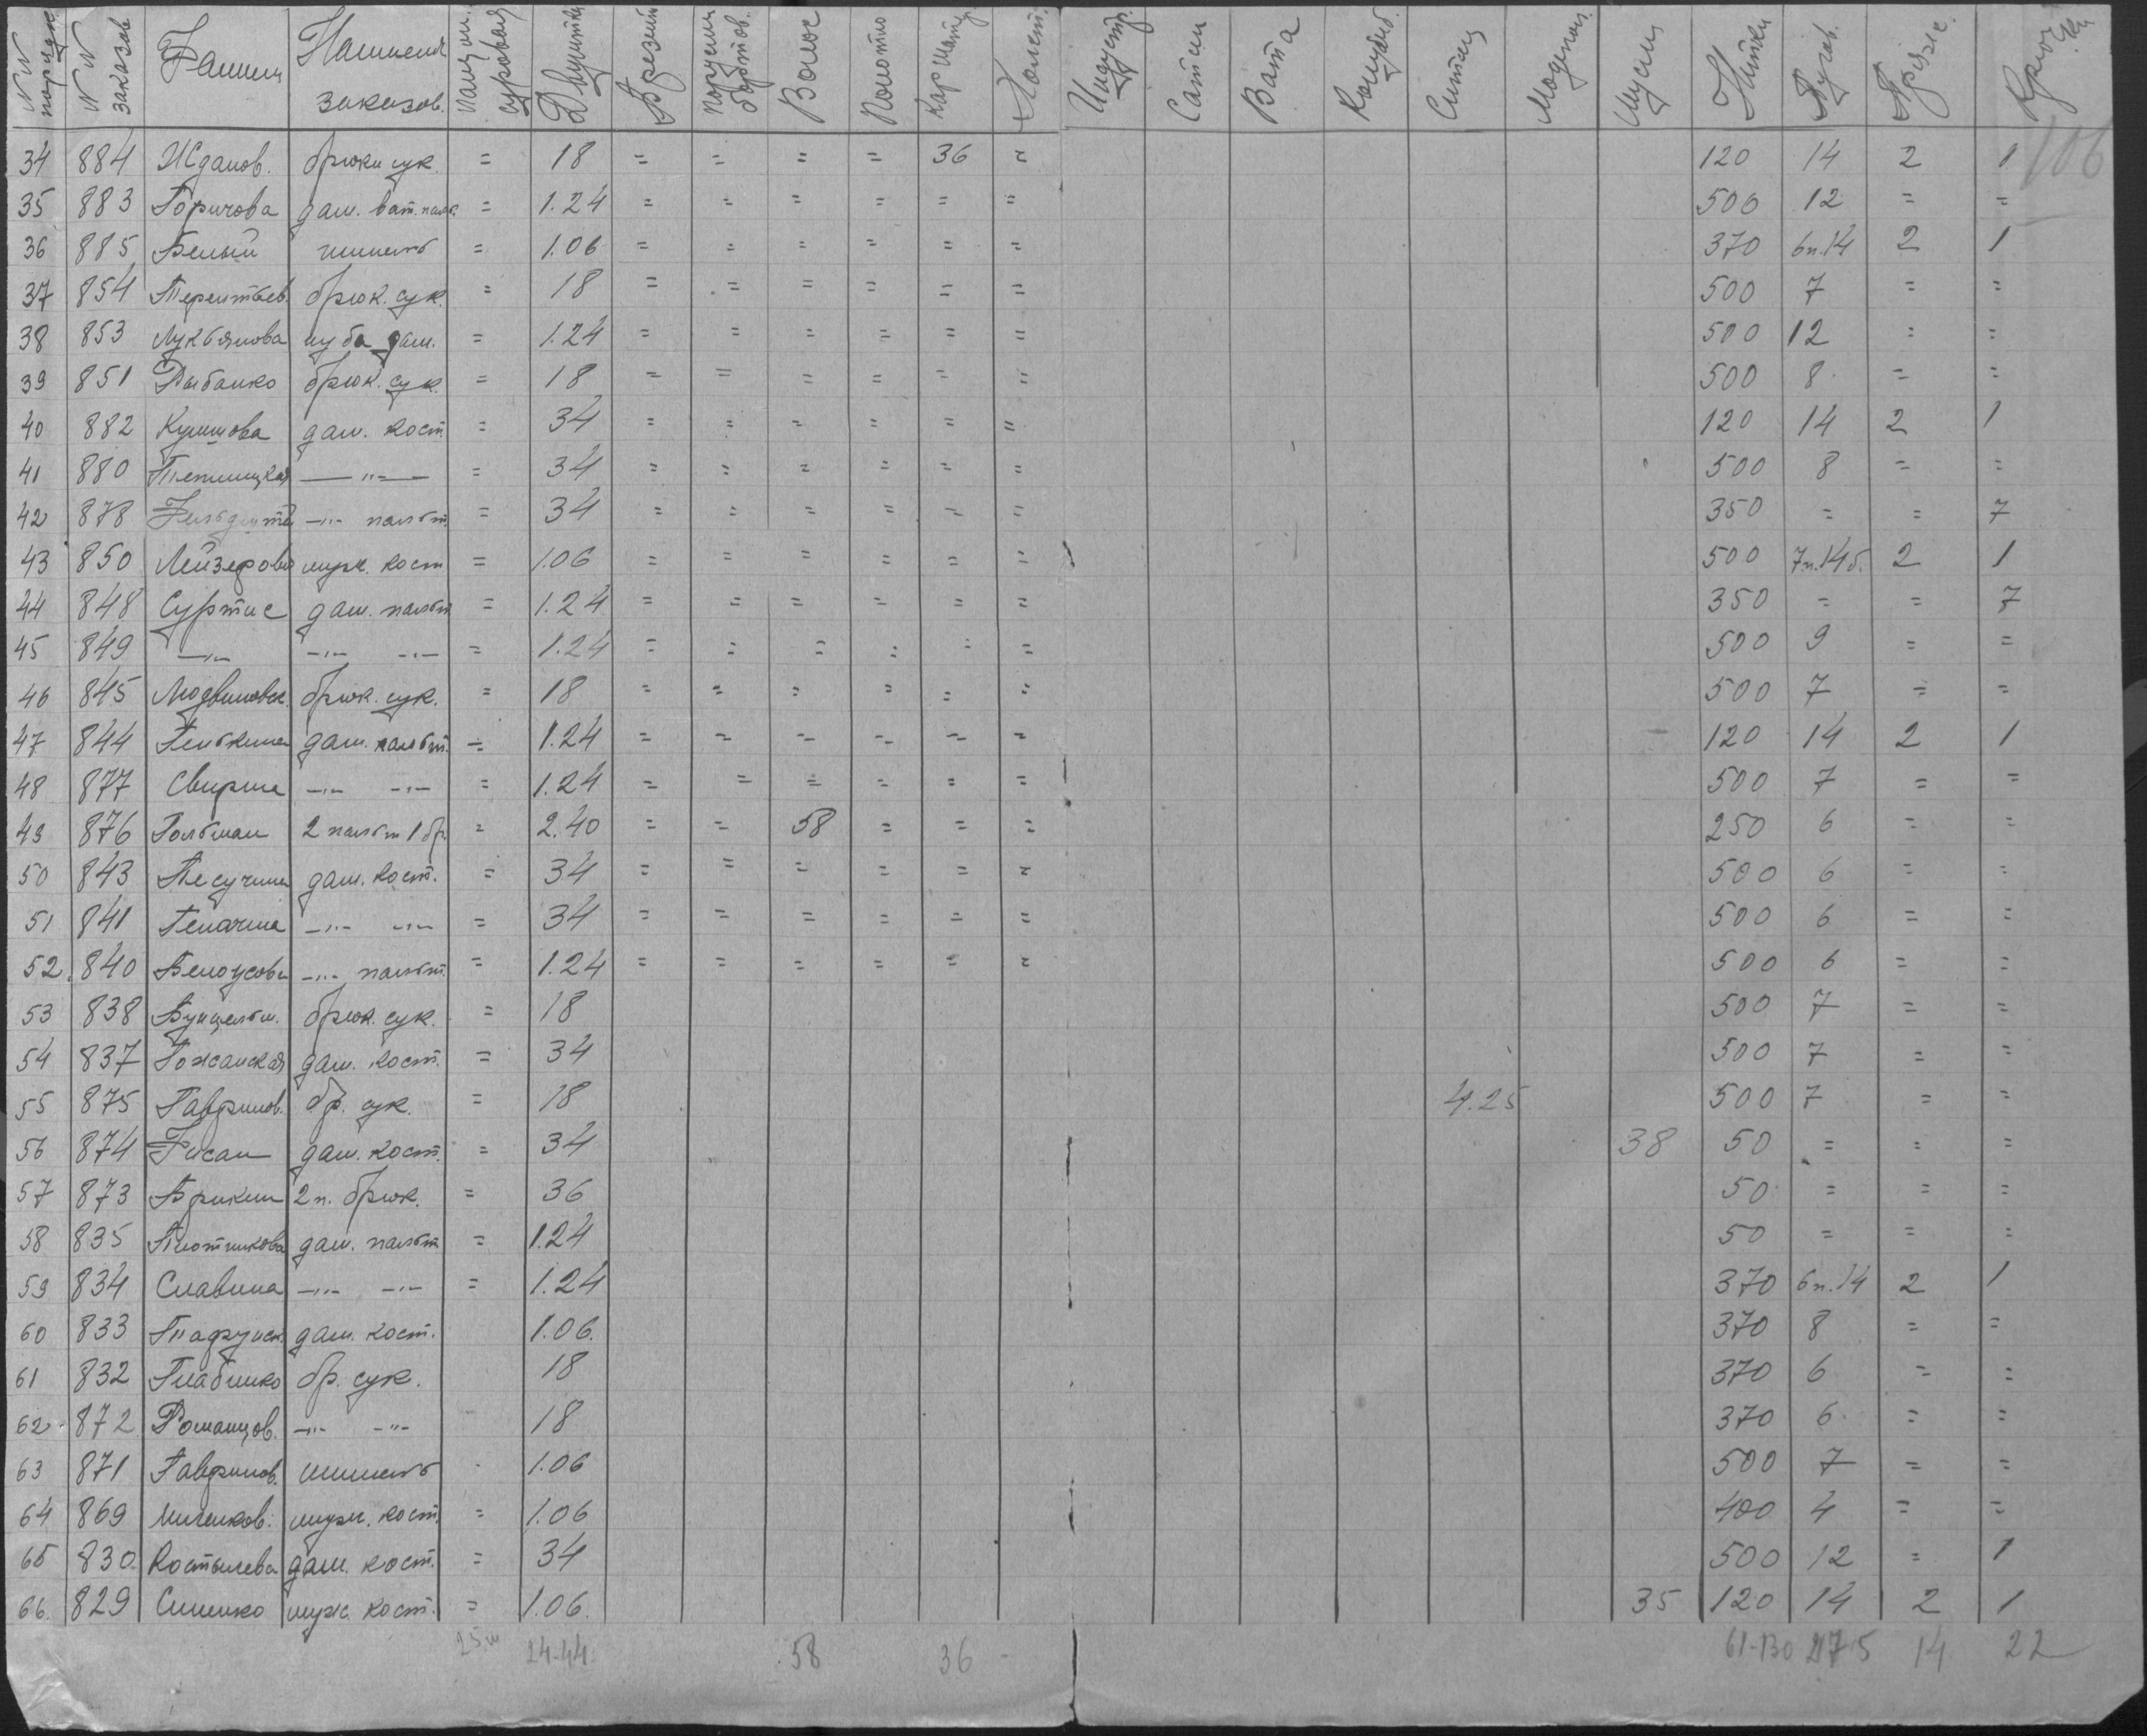 NN порядк. NN заказов Фамил Наимен. заказов. суровая Брезент бортов. Волос Полотно Сатин Вата Ситец Мадепол. Нитки Пугов. Пряж.
106
34 884 Жданов. брюки сук. = 18 = = = = 36 = 120 14 2 1
35 883 Горичова дам. ват. пал. = 1.24 = = = = = = 500 12 = =
36 885 Белый шинель = 1.06 = = = = = = 370 6п.14 2 1
37 854 Терентьев. брюк. сук. = 18 = = = = = = 500 7 = =
38 853 Лукьянова шуба дам. = 1.24 = = = = = = 500 12 = =
39 851 Рыбанко брюк. сук. = 18 = = = = = = 500 8 = =
40 882 дам. кост. = 34 = = = = = = 120 14 2 1
41 880 —"— = 34 = = = = = = 500 8 = =
42 878 —"— пальт. = 34 = = = = = = 350 = = 7
43 850 Лейзерови муж. кост = 1.06 = = = = = = 500 7п.14б. 2 1
44 848 Суртис дам. пальт = 1.24 = = = = = = 350 = = 7
45 849 —"— —"— —"— = 1.24 = = = = = = 500 9 = =
46 845 брюк. сук. = 18 = = = = = = 500 7 = =
47 844 дам. пальт. = 1.24 = = = = = = 120 14 2 1
48 877 Свирин —"— —"— = 1.24 = = = = = = 500 7 = =
49 876 Гольман 2 пальт 1 бр. = 2.40 = = 58 = = = 250 6 = =
50 843 Песучин дам. кост. = 34 = = = = = = 500 6 = =
51 841 —"— —"— = 34 = = = = = = 500 6 = =
52. 840 Белоусова —"— пальт. = 1.24 = = = = = = 500 6 = =
53 838 брюк. сук. = 18 500 7 = =
54 837 Гожанская дам. кост. = 34 500 7 = =
55 875 Гаврилов. бр. сук. = 18 4.25 500 7 = =
56 874 Фисан дам. кост. = 34 38 50 = = =
57 873 Брикин 2 п. брюк. = 36 50 = = =
58 835 Плотникова дам. пальт = 1.24 50 = = =
59 834 Славина —"— —"— = 1.24 370 6п.14 2 1
60 833 дам. кост. 1.06. 370 8 = =
61 832 Глабинко бр. сук. 18 370 6 = =
62 872 Романцов. —"— —"— 18 370 6 = =
63 871 Гаврилов. шинель 1.06 500 7 = =
64 869 Миленков. муж. кост. = 1.06 400 4 = =
65 830 Костылева дам. кост. = 34 500 12 = 1
66. 829 Синенко муж. кост. = 1.06. 35 120 14 2 1
24-44 58 36 61-130 14 22